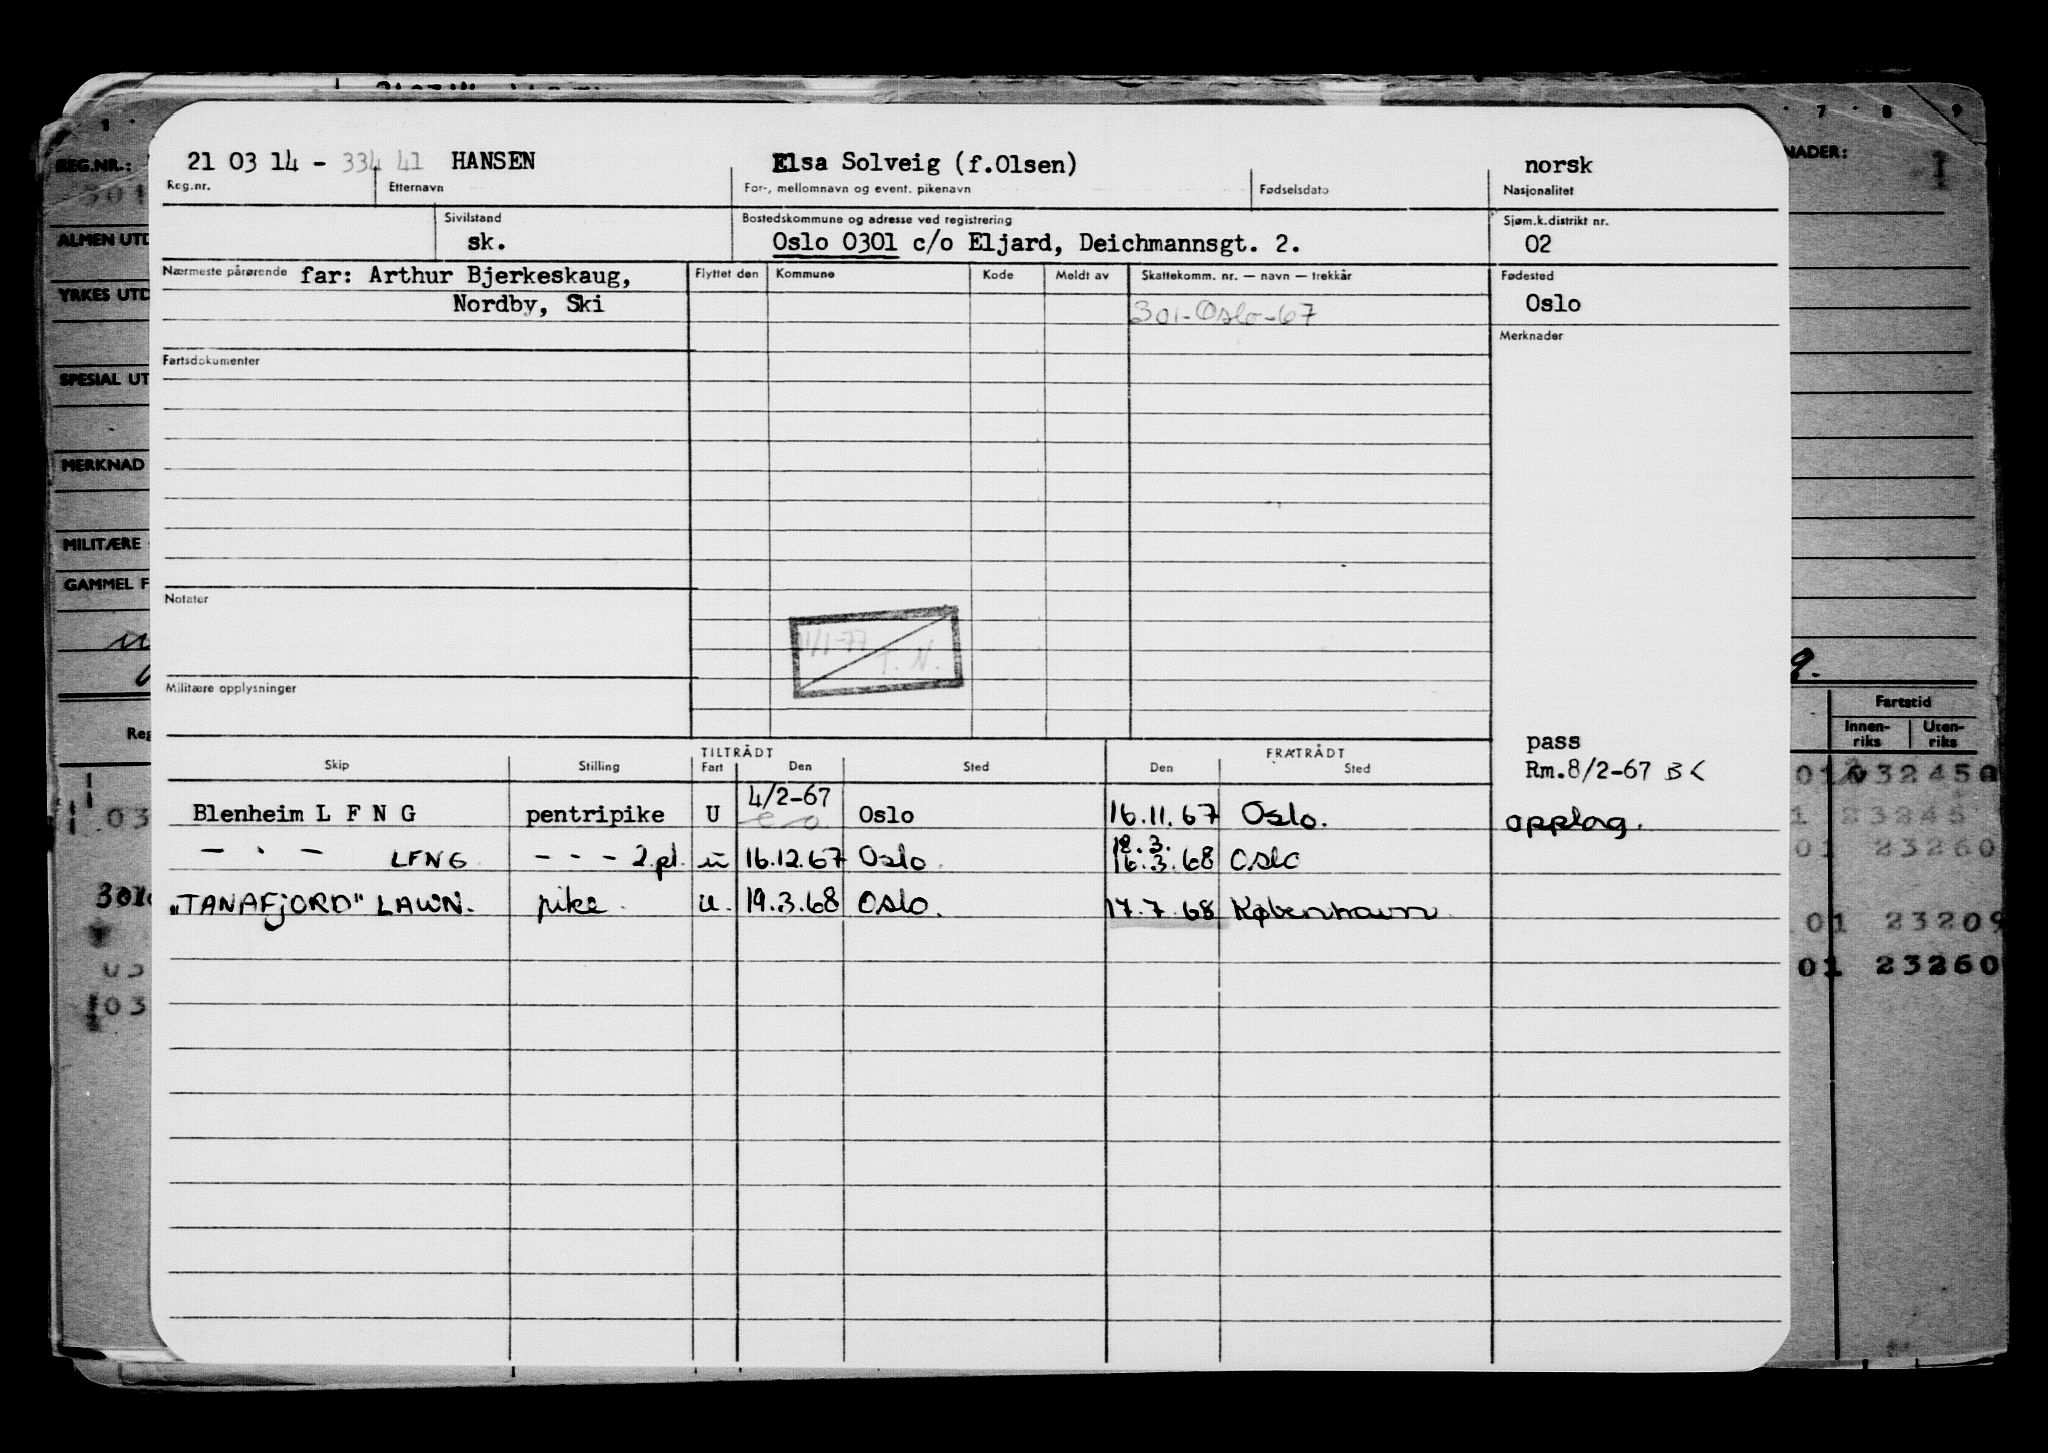 1 7 8 9
REG.NR.: NADER:
21 03 14 - 334 41 HANSEN Elsa Solveig (f.Olsen) norsk
Reg.nr. Etternavn For-, mellomnavn og event. pikenavn Fødselsdato Nasjonalitet
ALMEN UTD
Sivilstand Bostedskommune og adresse ved registrering Sjøm.k.distrikt nr.
sk. Oslo 0301 c/o Eljard, Deichmannsgt. 2. 02
Nærmeste pårørende far: Arthur Bjerkeskaug, Flyttet den Kommune Kode Meldt av Skattekomm. nr. — navn — trekkår Fødested
YRKES UTD
Nordby, Ski 301-Oslo-67 Oslo
Merknader
Fartsdokumenter
SPESIAL UT
MERKNAD
MILITÆRE
GAMMEL F
Notater
11/1-77
T. N.
Militære opplysninger
Fartstid
Innen-riks Uten-riks
Reg
pass
TILTRÅDT FRATRÅDT
Skip Stilling Fart Den Sted Den Sted
Rm.8/2-67 BK
Blenheim L F N G pentripike U 4/2-67 Oslo 16.11.67 Oslo. opplag.
— " — LFNG - - - 2.pl. u 16.12.67 Oslo. 18.3. 16.3.68 Oslo
"TANAFJORD" LAWN. pike. u. 19.3.68 Oslo. 17.7.68 København
01 23209
01 23260